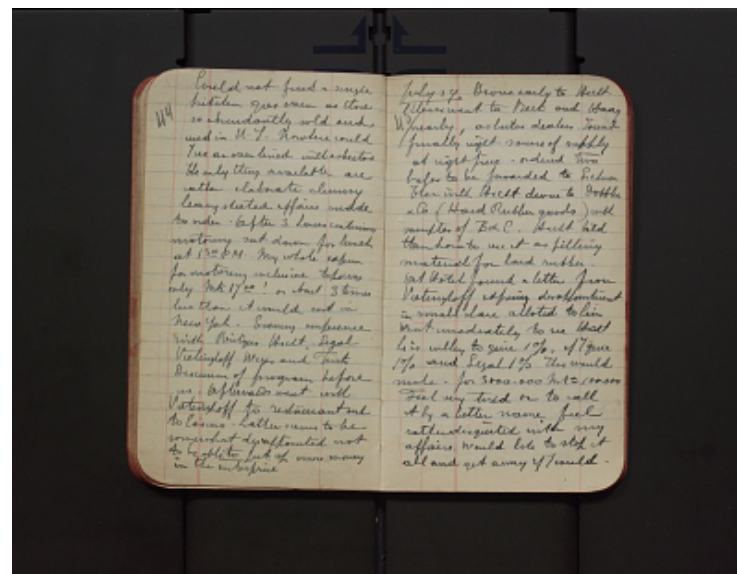 Could not find a single
kitchen gas oven as those
so abundantly sold and
used in U.S. Nowhere could
I see an oven lined with asbestos
The only thing available are
rather elaborate clumsy
heavy affairs made
to order. After 3 hours
motoring sat down for lunch
at 1 30 PM. My whole
for motoring inclusive
only Mk 17 00! or about 3 times
less than it would cost in
New York. Evening conference
with Rütgers Hecht, Segal
Vietinghoff Weger and
Discussion of program before
us. Afterwards went with
Vietinghoff to restaurant and
to Casino. Latter seems to be
somewhat disappointed not
to be able to get of more money
in the enterprise
114
July 27. Drove early to Hecht
then went to Beck and
nearby, asbestos dealers. Found
finally right source of supply
at right price. ordered two
to be forwarded to
Then with Hecht drove to
&Co (Hard Rubber goods) with
samples of B & C. Hecht told
them how to use it as filling
material for hard rubber.
(at Hotel found a letter from
Vietinghoff expressing
in small share alloted to him
Went immediately to see Hecht
he is willing to give 1%, if I give
1% and Segal 1% This would
make. for 3000.000 Mk
Feel very tired or to call
it by a better name feel
rather disgusted with my
affairs. Would like to stop it
all and get away if I could.